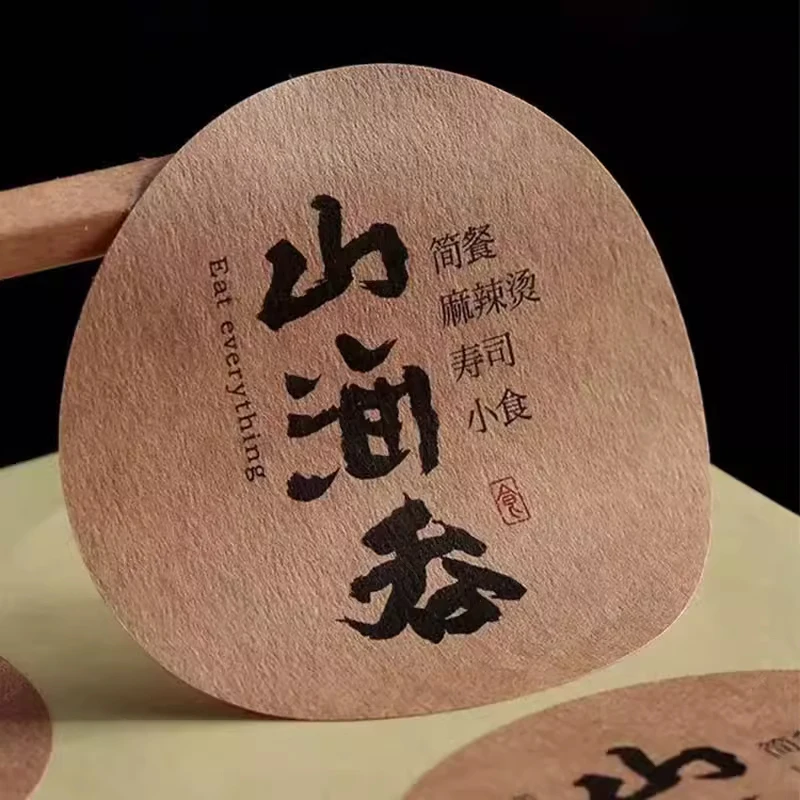 山海吞
Eat everything
简餐
麻辣烫
寿司
小食
食
山
简